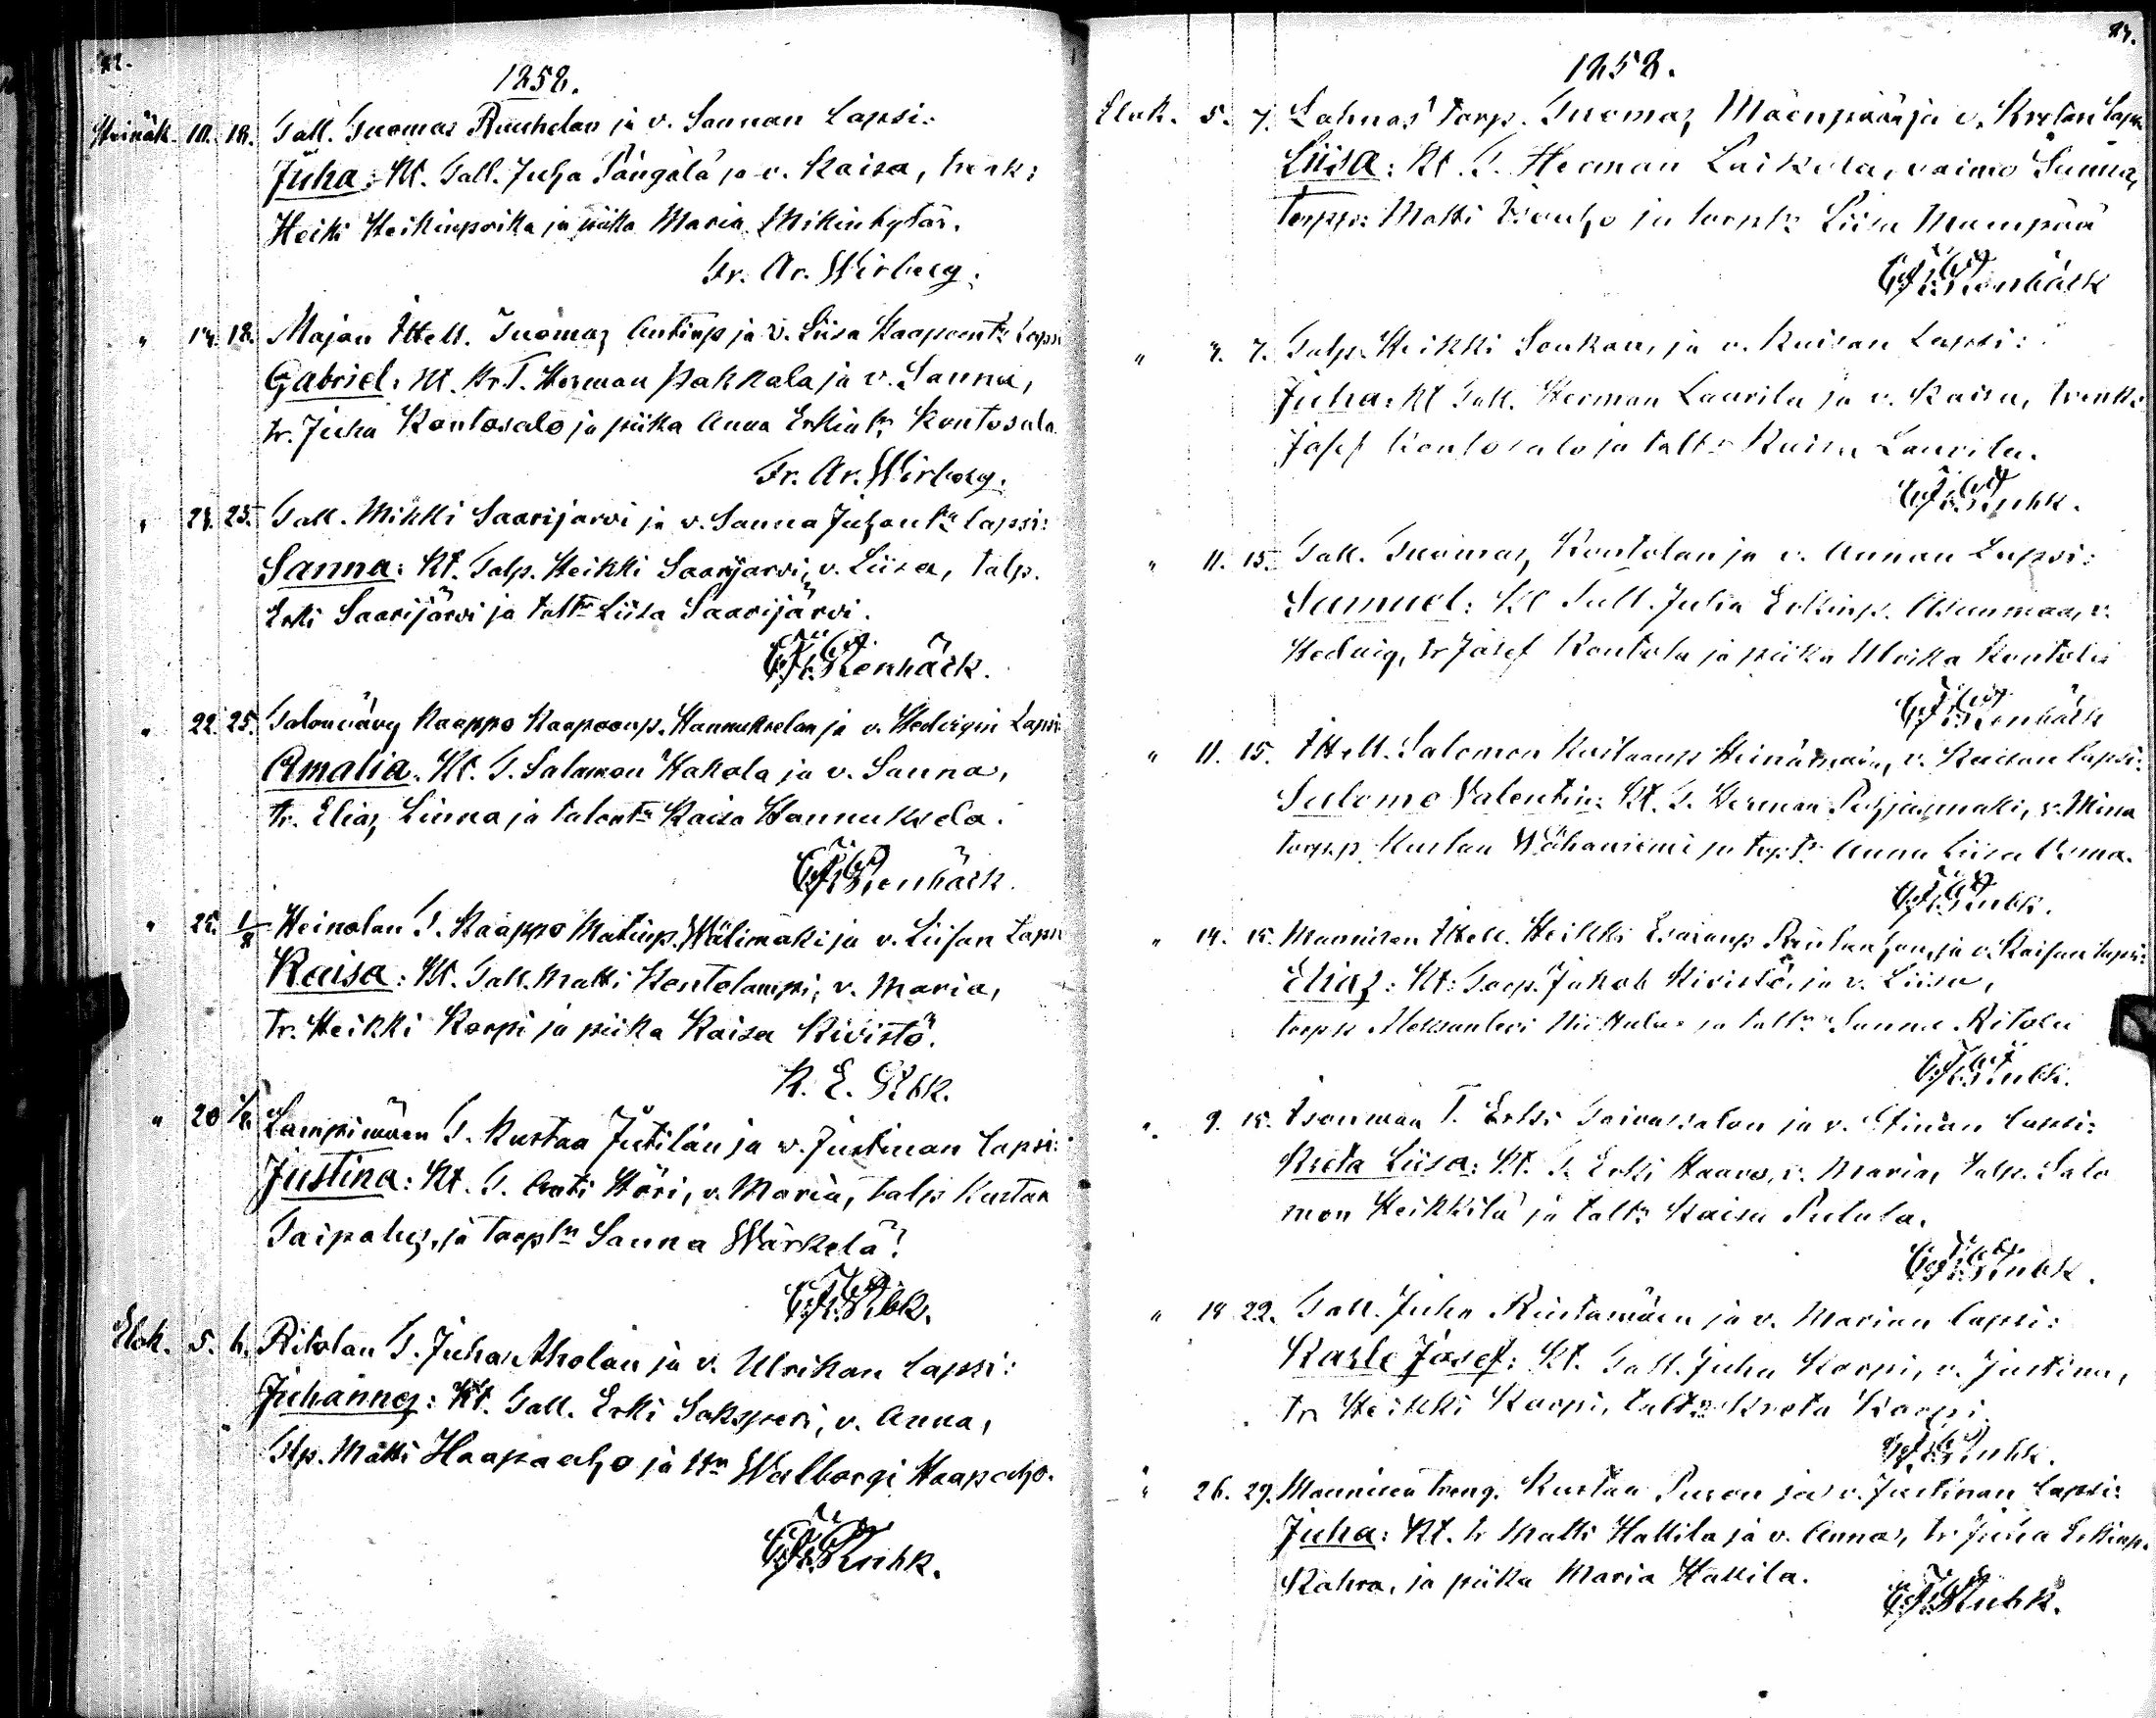 1858.
Heinäk. 10. 18. Tall. Tuomas Ruuhelan ja v. Sannan Lapsi:
Juha: Kt. Tall. Juha Pängälä ja v. Kaisa, trenk:
Heiki Heikinpoika ja piika Maria Mikintytär.
Fr. Ar. Wirberg.
" 14. 18. Majan Ittell. Tuomas Antinp ja v. Liisa Kaapont: Lapsi
Gabriel: Kt. Tr. T. Herman Pakkala ja v. Sanna,
tr. Juha Kontosalo ja piika Anna Erkint: Kontosalo
Fr. Ar. Wirberg.
" 24. 25. Tall. Mikki Saarijärvi ja v. Sanna Juhont:n lapsi:
Sanna: Kt. Talp. Heikki Saarijärvi, v. Liisa, talp.
Erki Saarijärvi ja taltr Liisa Saarijärvi.
Stenbäck.
" 22. 25. Talonvävy Kaappo Kaapoonp. Hannukselan ja v. Hedvigin Lapsi
Amalia. Kt. T. Salamon Hakola ja v. Sanna,
tr. Elias Linna ja talontr Kaisa Hannuksela.
Stenbäck.
" 25. 1/8 Heinolan T. Kaappo Matinp. Wälimäki ja v. Liisan Lapsi
Kaisa: Kt. Tall. Matti Hentolampi, v. Maria,
tr. Heikki Korpi ja piika Kaisa Kivistö.
K. E. Stbk.
" 20 1/8. Lampimäen T. Kustaa Jutilan ja v. Justinan lapsi:
Justina: Kt. T. Anti Höri, v. Maria, talp Kustaa
Taipalus, ja torptr Sanna Wärkelä.
Stbk.
Elok. 5. 6. Ritolan T. Juha Aholan ja v. Ulrikan lapsi:
Juhannes: Kt. Tall. Erki Saksperi, v. Anna,
Tlp. Matti Haapaaho ja ttr Walborgi Haapaaho.
Stnbk.
1858.
Elok. 5. 7. Lahnas torp. Tuomas Mäenpään ja v. Kretan Lapsi
Liisa: Kt. T. Herman Laikola, vaimo Sanna,
torpp: Matti ja torptr Liisa Mäenpää
Stenbäck
" 4. 7. Talp. Heikki Soukan, ja v. Kaisan Lapsi:
Juha: Kt Tall. Herman Laurila ja v. Kaisa, trenk:
Josef Kontosalo ja taltr Kaisa Laurila.
Stnbk.
" 11. 15. Tall. Tuomas Kontolan ja v. Annan Lapsi:
Samuel: Kt Tall. Juha Erkinp. Asunmaa, v.
Hedvig, tr Josef Kontola ja piika Ulrika Kontola
Stenbäck
" 11. 15. Ittell. Salomon Heinämäen, v. Kaisan lapsi:
Salomo Valentin: Kt. T. Herman Pohjanmäki, v. Mina
torp.p. Kustaa Wähäniemi ja torptr Anna Liisa
Stnbk.
" 14. 15. Mannisen Ittell. Heikki Esaianp ja v. Kaisan lapsi:
Elias: Kt: Torp. Jakob Kivistö, ja v. Liisa,
torpp. Aleksanteri ja taltr Sanna Ritola
Stnbk.
" 9. 15. T. Erkki Taivassalon ja v. Stinan lapsi:
Kreta Liisa: Kt. T. Erki Haavo, v. Maria, talp. Salo
mon Heikkilä ja taltr Kaisa
Stnbk.
" 18 22. Tall. Juha Rintamäen ja v. Marian lapsi:
Karle Josef: Kt. Tall. Juha Korpi, v. Justina,
tr Heikki Karpi, taltr Kreta Karpi.
Stnbk.
" 26. 29. Mannisen treng. Kustaa Puson ja v. Justinan lapsi:
Juha: Kt. tr Matti Hallila ja v. Anna, tr Juha Erkinp.
Kahra, ja piika Maria Hallila.
Stnbk.